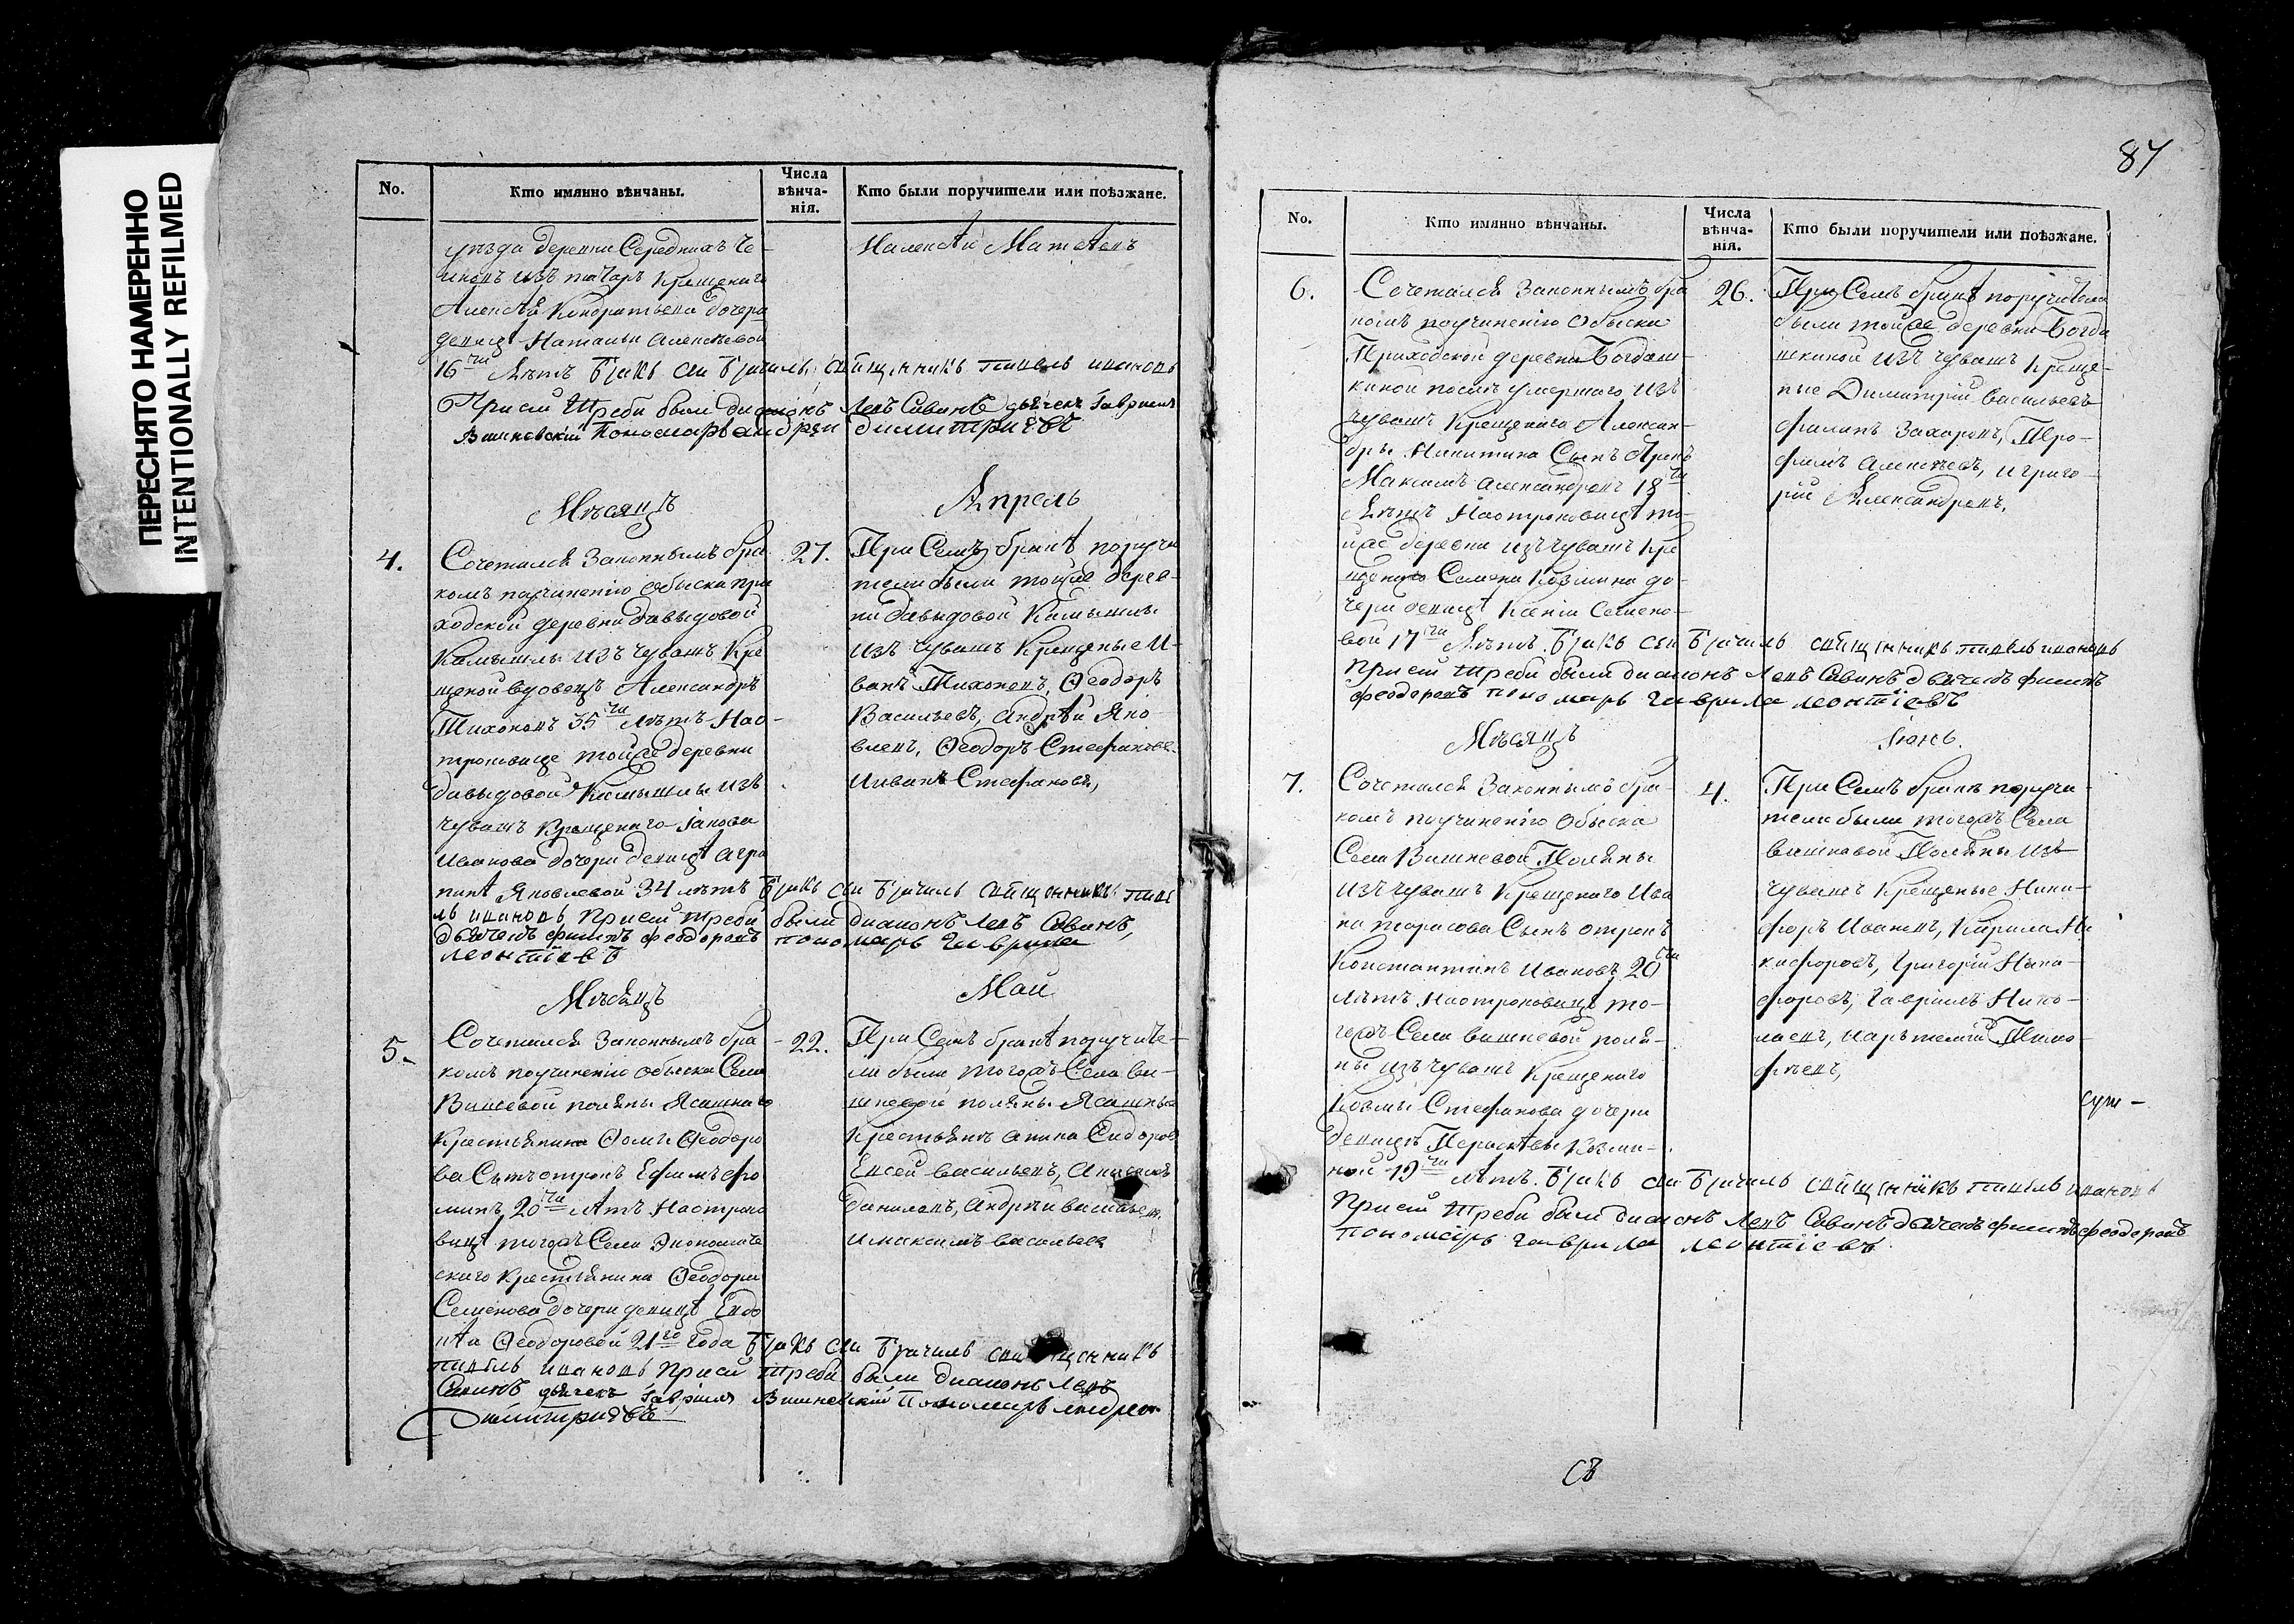 ПЕРЕСНЯТО НАМЕРЕННО
INTENTIONALLY REFILMED
No.
Кто имянно вѣнчаны.
Числа
вѣнча-
нія.
Кто были поручители или поѣзжане.
уѣзда деревни Середнихъ Че-
из татаръ крещенаго
Алексѣя Кондратьева дочерѣ
девицѣ Натальи Алексѣевой
16ти лѣтъ бракъ сей брачилъ священникъ павелъ ивановъ
При сей требѣ были диаконъ Левъ Савинъ дьячекъ Гавриилъ
Вишневскій Пономарь андрей димитріевъ
Иалексѣй Матвѣевъ
Мѣсяцъ
Апрель
4.
Сочетался Законнымъ бра
комъ поучиненію Обыска при
ходской деревни Давыдовой
Камышлы изъ чувашъ Кре
щеной вдовецъ Александръ
Тихоновъ 35ти лѣтъ Нао-
троковице тойже деревни
Давыдовой Камышлы изъ
чувашъ Крещенаго Іакова
Иванова дочери девицѣ агра
пинѣ Яковлевой 34 лѣтъ бракъ сей брачилъ священникъ паве
лъ ивановъ При сей требѣ были диаконъ Левъ Савинъ,
дьячекъ филипъ феодоровъ пономарь гаврила
леонтіевъ
27.
При Семъ бракѣ поручи
тели были тойже дерев-
ни Давыдовой Камышлы
изъ чувашъ Крещеные И-
ванъ Тихоновъ, Ѳеодоръ
Васильевъ, Андрѣй Яко-
влевъ, Ѳеодоръ Стефановъ
Ииванъ Стефановъ,
Мѣсяцъ
Май
5.
Сочетался Законнымъ бра-
комъ поучиненію обыска Села
Вишневой поляны Ясашнаго
Крестьянина Ѳомы Ѳеодоро
ва Сынъ отрокъ Ефимъ Ѳо
минъ 20ти лѣтъ Наотроко
вицѣ тогожъ Села Экономиче
скаго Крестьянина Ѳеодора
Семенова дочери девицѣ Евдо
кѣи Ѳеодоровой 21го года бракъ сей брачилъ священникъ
павелъ ивановъ При сей требѣ были диаконъ Левъ
Савинъ дьячекъ Гавріилъ Вишневскій Пономарь андрей
Димитріевъ
22.
При Семъ бракѣ поручите-
ли были тогожъ Села Ви-
шневой поляны Ясашные
Крестьяне Сидоровъ
Евсей Васильевъ,
Даниловъ, Андрѣй Васильевъ
Имаксимъ Васильевъ
87
No.
Кто имянно вѣнчаны.
Числа
вѣнча-
нія.
Кто были поручители или поѣзжане.
6.
Сочетался Законнымъ бра
комъ поучиненію Обыска
Приходской деревни Богдаш-
киной послѣ умершаго изъ
чувашъ Крещенаго Алексан-
дры Никитина Сынъ Отрокъ
Максимъ Александровъ 18ти
Лѣтъ Наотроковицѣ то-
йже деревни изъ чувашъ Кре
щенаго Семена Козмина до-
чери девицѣ Ксеніи Семено-
вой 17ти лѣтъ. бракъ сей брачилъ священникъ павелъ ивановъ
При сей требѣ были диаконъ Левъ Савинъ дьячекъ филипъ
феодоровъ пономарь гаврила леонтіевъ
26.
При Семъ бракѣ поручители
были тойже деревни Богда
шкиной изъ чувашъ Креще-
ные Димитрій Васильевъ
Филипъ Захаровъ, Тро-
фимъ Алексѣевъ, и григо-
рій Александровъ,
Мѣсяцъ
Іюнь.
7.
Сочетался Законнымъ бра-
комъ поучиненію Обыска
Села Вишневой Поляны
изъ чувашъ Крещенаго Ива
на тарасова Сынъ отрокъ
Константинъ Ивановъ 20ти
лѣтъ Наотроковицѣ то-
гожъ Села вишневой поля-
ны изъ чувашъ Крещенаго
Козмы Стефанова дочери
девицѣ Параскѣвы Козми-
ной 19ти лѣтъ. бракъ сей брачилъ священникъ павелъ ивановъ
При сей требѣ были диаконъ Левъ Савинъ дьячекъ филипъ феодоровъ
пономарь гаврила леонтіевъ
4.
При Семъ бракѣ поручи-
тели были тогожъ Села
вишневой Поляны изъ
чувашъ Крещеные Ники-
форъ Ивановъ, Кирила Ни
кифоровъ, Григорій Ники-
форовъ, Гавріилъ Нико-
лаевъ, Тимо-
фѣевъ,
Съ